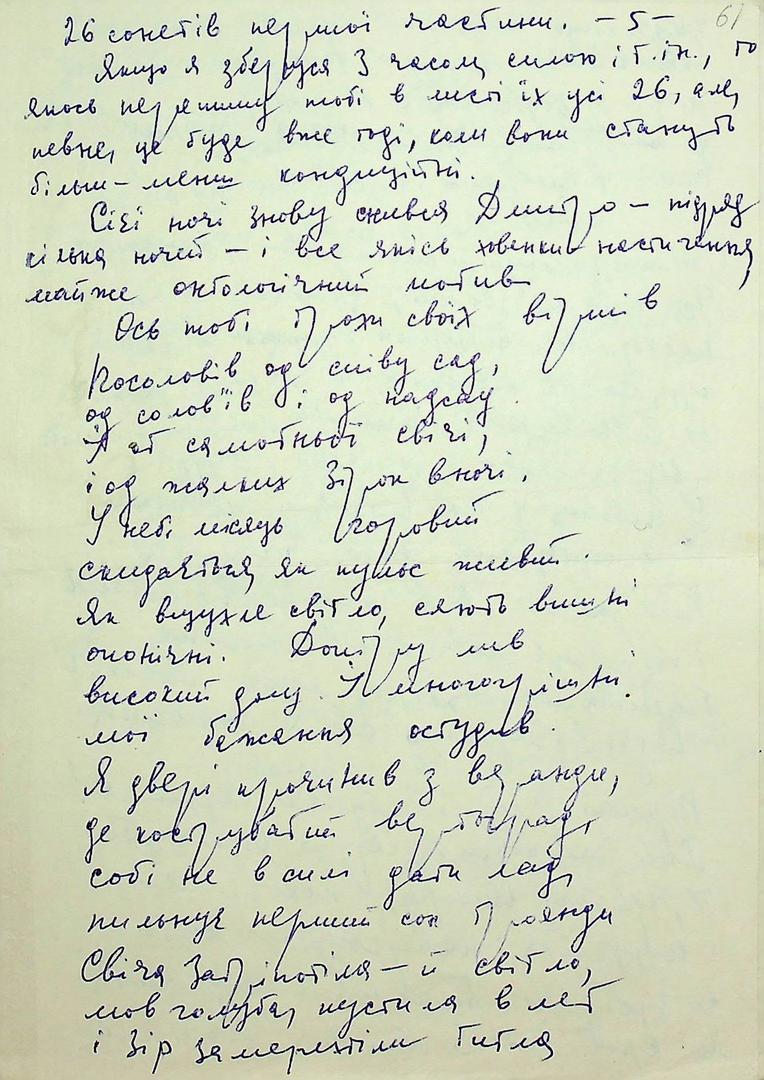 26 сонетів першої частини. – 5 – 61
Якщо я зберуся з часом, силою і т. ін., то
якось перепишу тобі в листі їх усі 26, але,
певне, це буде вже тоді, коли вони стануть
більш-менш кондиційні.
Сієї ночі знову снився Дмитро – підряд
кілька ночей – і все якісь хованки-настигання,
майже онтологічний мотив
Ось тобі трохи своїх віршів
Посоловів од співу сад,
од солов'їв і од надсад.
І од самотньої свічі,
і од жалких зірок вночі.
У небі місяць горовий
скидається, як пульс живий.
Як вщухле світло, сяють вишні
опонічні. Допіру лив
високий дощ. І многогрішні
мої бажання остудив.
Я двері прочинив з веранди,
де кострубатий вертоград,
собі не в силі дати лад,
пильнує перший сон троянди
Свіча затріпотіла – й світло,
мов голуба, пустила в лет
і зір замерехтіли